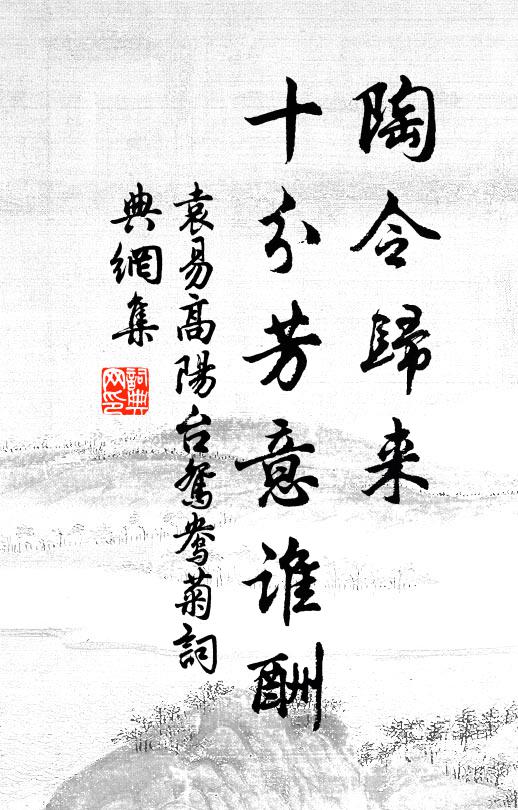 陶令歸来
十分芳意誰酬
袁易高陽台鴛鴦菊詞
典網集
詞典網印